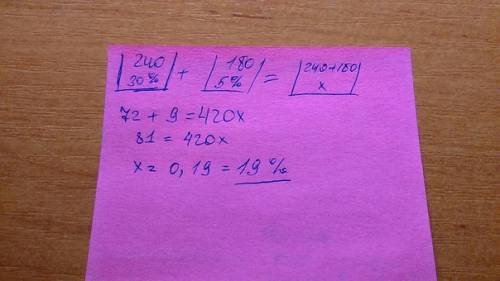 240 + 180 = 240+180
30% 5% x
72 + 9 = 420x
81 = 420x
x = 0,19 = 19%